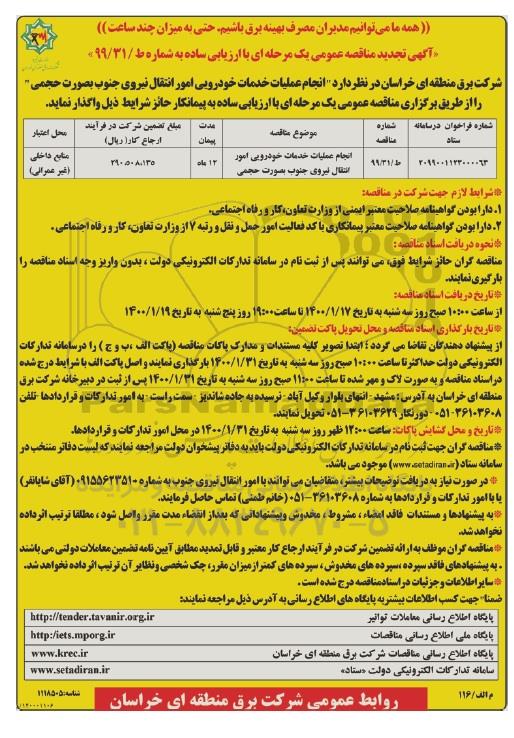 (( همه ما می‌توانیم مدیران مصرف بهینه برق باشیم. حتی به میزان چند ساعت ))
«آگهی تجدید مناقصه عمومی یک مرحله ای با ارزیابی ساده به شماره ط/۹۹/۳۱ »
شرکت برق منطقه ای خراسان در نظر دارد "انجام عملیات خدمات خودرویی امور انتقال نیروی جنوب بصورت حجمی"
را از طریق برگزاری مناقصه عمومی یک مرحله ای با ارزیابی ساده به پیمانکار حائز شرایط ذیل واگذار نماید.
شماره فراخوان درسامانه ستاد | شماره مناقصه | موضوع مناقصه | مدت پیمان | مبلغ تضمین شرکت در فرآیند ارجاع کار( ریال) | محل اعتبار
۲۰۹۹۰۰۱۱۲۳۰۰۰۰۹۳ | ط/۹۹/۳۱ | انجام عملیات خدمات خودرویی امور انتقال نیروی جنوب بصورت حجمی | ۱۲ ماه | ۲۹۰،۵۰۸،۱۳۵ | منابع داخلی (غیر عمرانی)
*شرایط لازم جهت شرکت در مناقصه:
۱. دارا بودن گواهینامه صلاحیت معتبر ایمنی از وزارت تعاون،کار و رفاه اجتماعی.
۲. دارا بودن گواهینامه صلاحیت معتبر پیمانکاری با کد فعالیت امور حمل و نقل و رتبه ۷ از وزارت تعاون، کار و رفاه اجتماعی.
*نحوه دریافت اسناد مناقصه :
مناقصه گران حائز شرایط فوق، می توانند پس از ثبت نام در سامانه تدارکات الکترونیکی دولت ، بدون واریز وجه اسناد مناقصه را
بارگیری نمایند.
*تاریخ دریافت اسناد مناقصه:
از ساعت ۱۰:۰۰ صبح روز سه شنبه به تاریخ ۱۴۰۰/۱/۱۷ تا ساعت ۱۹:۰۰ روز پنج شنبه به تاریخ ۱۴۰۰/۱/۱۹
*تاریخ بارگذاری اسناد مناقصه و محل تحویل پاکت تضمین:
از پیشنهاد دهندگان تقاضا می گردد ؛ ابتدا تصویر کلیه مستندات و مدارک پاکات مناقصه (پاکت الف ،ب و ج ) را درسامانه تدارکات
الکترونیکی دولت حداکثر تا ساعت ۱۰:۰۰ صبح روز سه شنبه به تاریخ ۱۴۰۰/۱/۳۱ بارگذاری نمایند و اصل پاکت الف با شرایط درج شده
در اسناد مناقصه و به صورت لاک و مهر شده تا ساعت ۱۱:۰۰ صبح روز سه شنبه به تاریخ ۱۴۰۰/۱/۳۱ پس از ثبت در دبیرخانه شرکت برق
منطقه ای خراسان به آدرس : مشهد - انتهای بلوار وکیل آباد - نرسیده به جاده شاندیز - سمت راست - به امور تدارکات و قراردادها - تلفن
۳۶۱۰۳۶۰۸-۰۵۱ - دورنگار ۳۶۱۰۳۶۲۹-۰۵۱ تحویل نمایند.
*تاریخ و محل گشایش پاکات: ساعت ۱۲:۰۰ ظهر روز سه شنبه به تاریخ ۱۴۰۰/۱/۳۱ در محل امور تدارکات و قراردادها.
*مناقصه گران جهت ثبت نام در سامانه تدارکات الکترونیکی دولت بایدبه دفاتر پیشخوان دولت مراجعه نمایند که لیست دفاتر منتخب در
سامانه ستاد (www.setadiran.ir) موجود می باشد.
* در صورت نیاز به دریافت توضیحات بیشتر، متقاضیان می توانند با امور انتقال نیروی جنوب به شماره ۰۹۱۵۵۶۲۳۳۵۰ (آقای شایانفر)
یا با امور تدارکات و قراردادها به شماره ۳۶۱۰۳۶۰۸-۰۵۱ (خانم طمئنی) تماس حاصل فرمایند.
*به پیشنهادها و مستندات فاقد امضاء ، مشروط ، مخدوش وپیشنهاداتی که بعداز انقضاء مدت مقرر واصل شود ، مطلقا ترتیب اثر داده
نخواهدشد.
*مناقصه گران موظف به ارائه تضمین شرکت در فرآیند ارجاع کار معتبر و قابل تمدید مطابق آیین نامه تضمین معاملات دولتی می باشند
. به پیشنهادهای فاقد سپرده ،سپرده های مخدوش ، سپرده های کمتر از میزان مقرر، چک شخصی ونظایر آن ترتیب اثر داده نخواهد شد.
*سایر اطلاعات وجزئیات دراسنادمناقصه درج شده است .
ضمنا" جهت کسب اطلاعات بیشتر به پایگاه های اطلاع رسانی به آدرس ذیل مراجعه نمایند:
پایگاه اطلاع رسانی معاملات توانیر | http://tender.tavanir.org.ir
پایگاه ملی اطلاع رسانی مناقصات | http://iets.mporg.ir
پایگاه اطلاع رسانی مناقصات شرکت برق منطقه ای خراسان | www.krec.ir
سامانه تدارکات الکترونیکی دولت «ستاد» | www.setadiran.ir
م الف/۱۱۶
شناسه:۱۱۱۸۵۰۵
روابط عمومی شرکت برق منطقه ای خراسان
۰۲۱-۸۸۳۴۹۶۷۰-۵